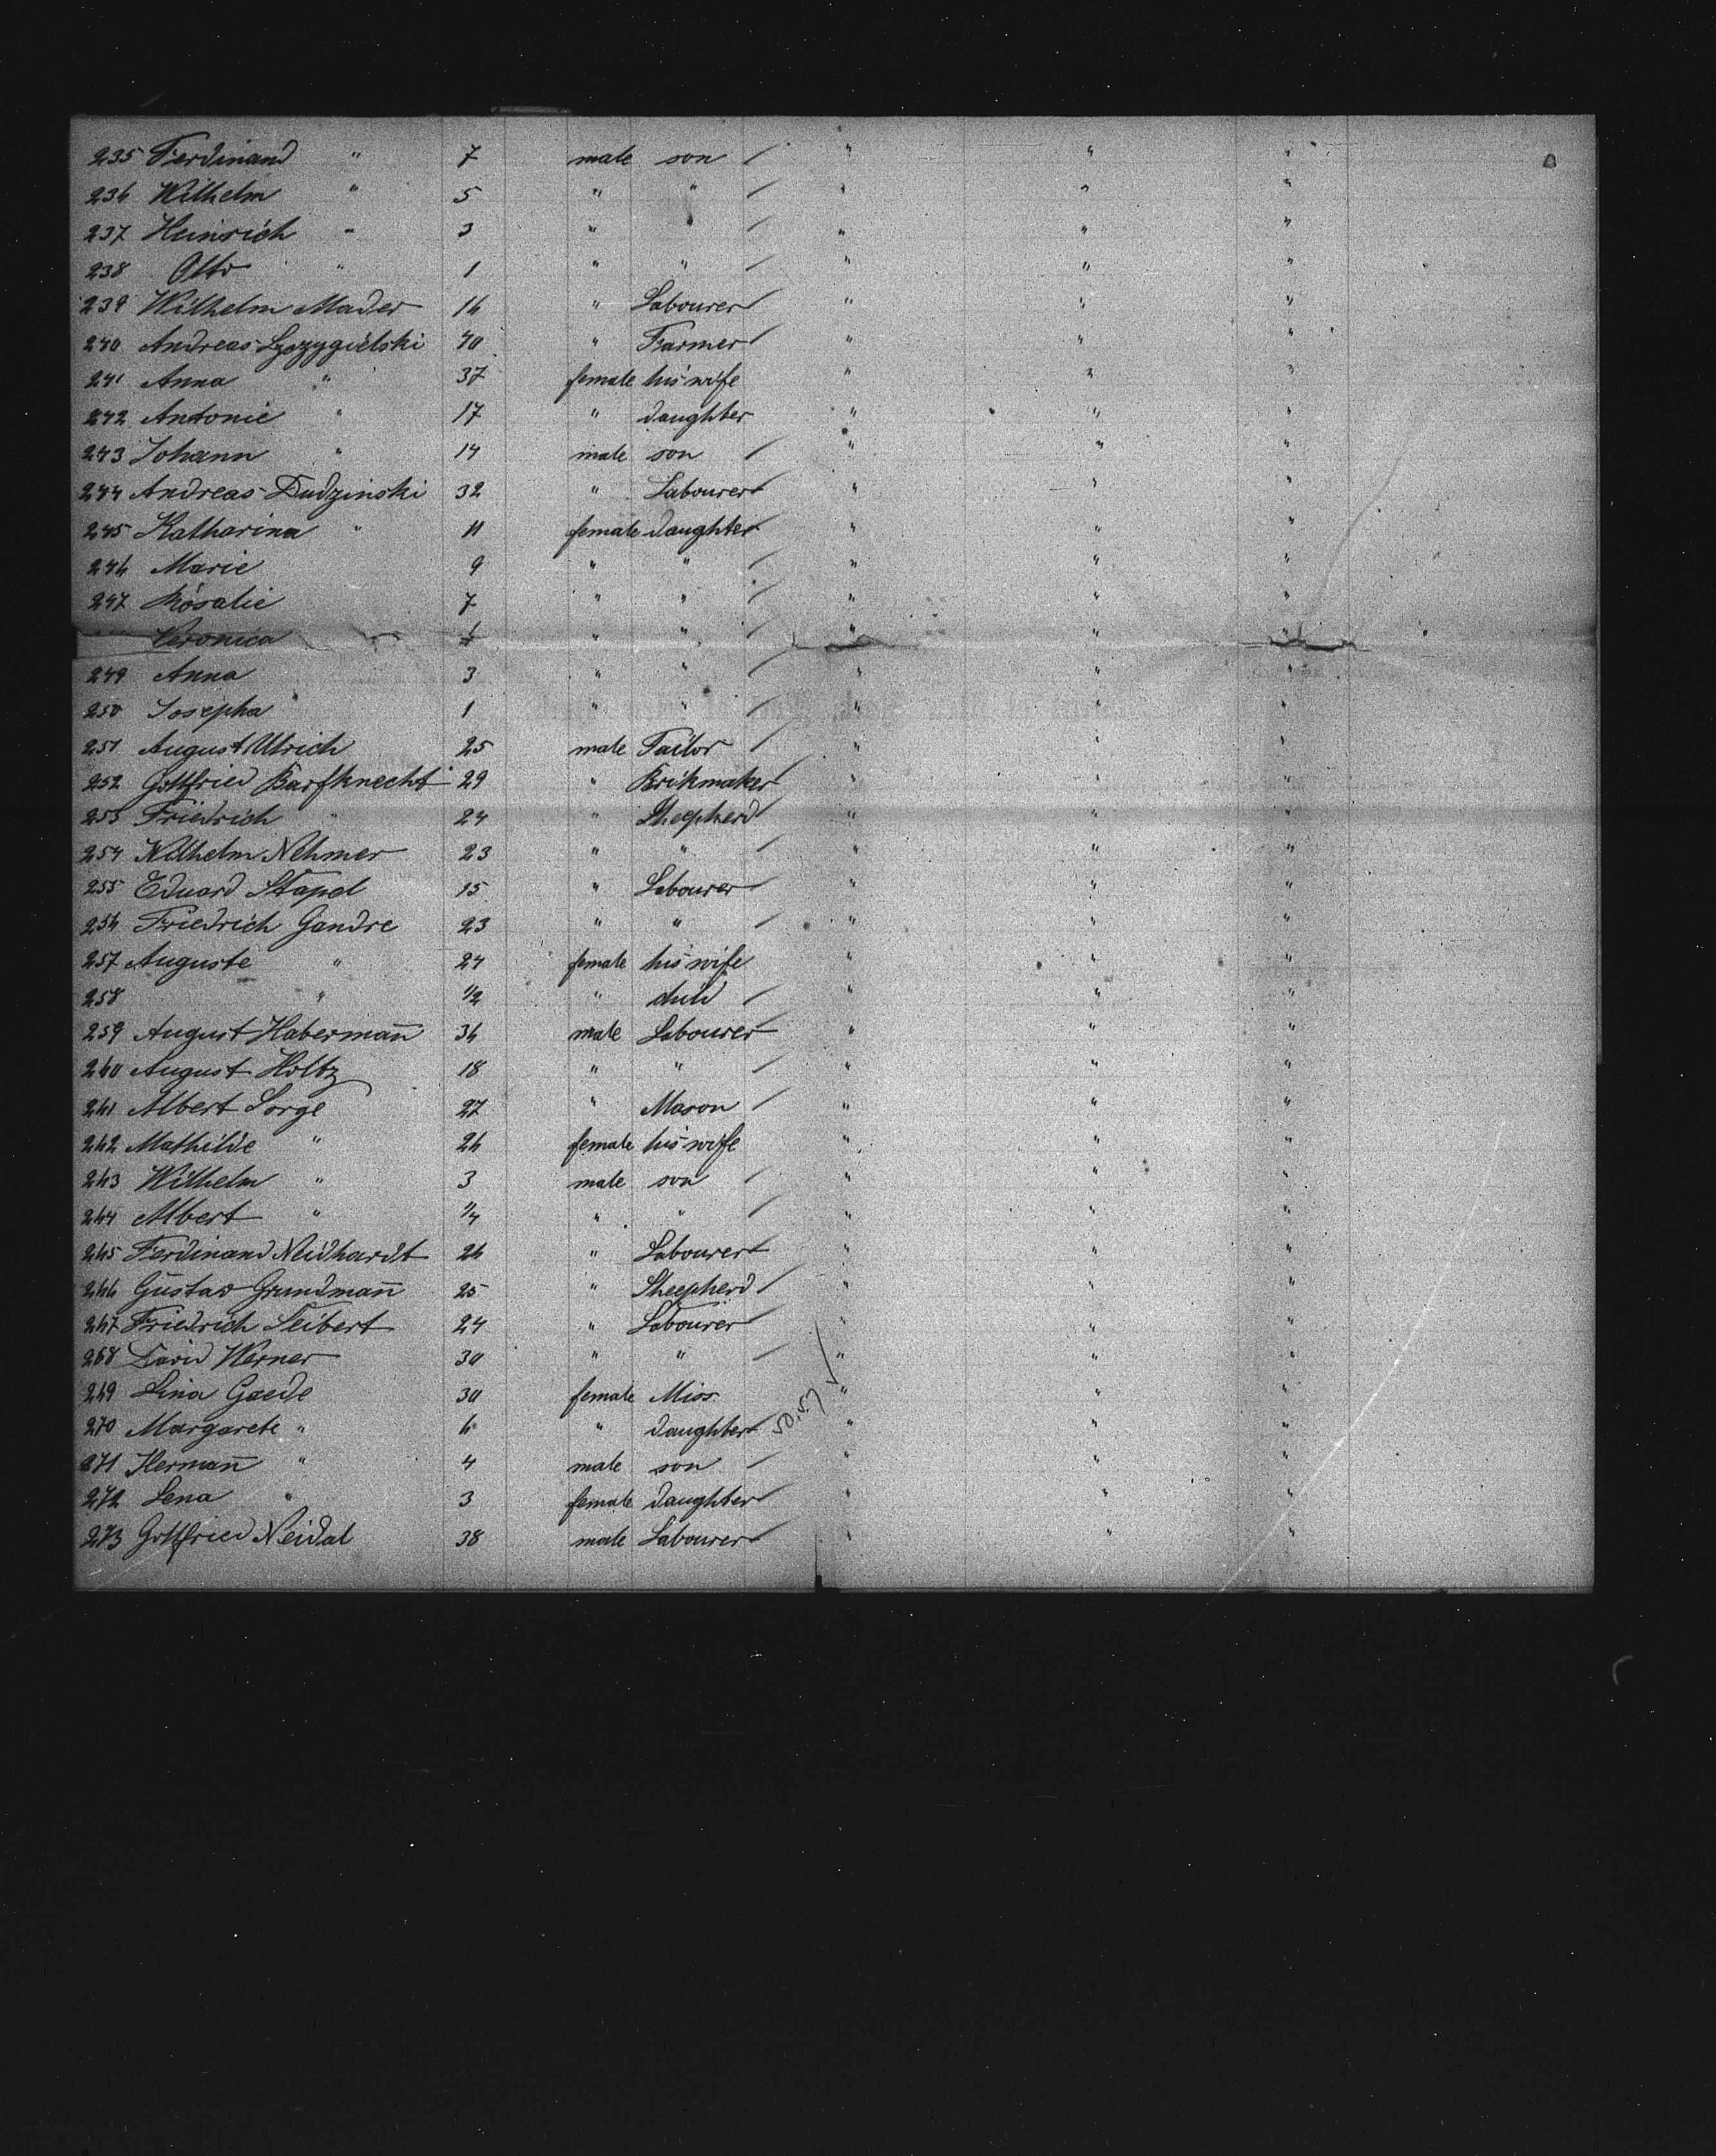 235 Ferdinand " 7 male son / " " "
236 Wilhelm " 5 " " / " " "
237 Heinrich " 3 " " / " " "
238 Otto " 1 " " / " " "
239 Wilhelm Mader 16 " Labourer / " " "
240 Andreas 40 " Farmer / " " "
241 Anna " 37 female his wife " " "
242 Antonie " 17 " daughter " " "
243 Johann " 14 male son / " " "
244 Andreas Dudzinski 32 " Labourer / " " "
245 Katharina " 11 female daughter / " " "
246 Marie 9 " " / " " "
247 Rosalie 7 " " / " " "
Veronica " " / " " "
249 Anna 3 " " / " " "
250 Josepha " 1 " " / " " "
251 August Ulrich 25 male Tailor / " " "
252 Gottfried Barfknecht 29 " Brikmaker / " " "
253 Friedrich " 24 " Sheepherd / " " "
254 Wilhelm Nehmer 23 " " / " " "
255 Eduard Stapel 15 " Labourer / " " "
256 Friedrich Gandre 23 " " / " " "
257 Auguste " 24 female his wife " " "
258 " 1/2 " child / " " "
259 August Habermañ 36 male Labourer / " " "
260 August Holtz 18 " " / " " "
261 Albert Sorge 27 " Mason / " " "
262 Mathilde " 26 female his wife " " "
263 Wilhelm " 3 male son / " " "
264 Albert " 1/4 " " / " " "
265 Ferdinand Neidhardt 26 " Labourer / " " "
266 Gustav Grundmañ 25 " Sheepherd / " " "
267 Friedrich Seibert 24 " Labourer / " " "
268 David Werner 30 " " / " " "
269 Lina Gaede 30 female Miss " " "
270 Margarete " 6 " daughter / " " "
271 Hermañ " 4 male son / " " "
272 Lena " 3 female daughter / " " "
273 Gottfried Neidal 38 male Labourer / " "